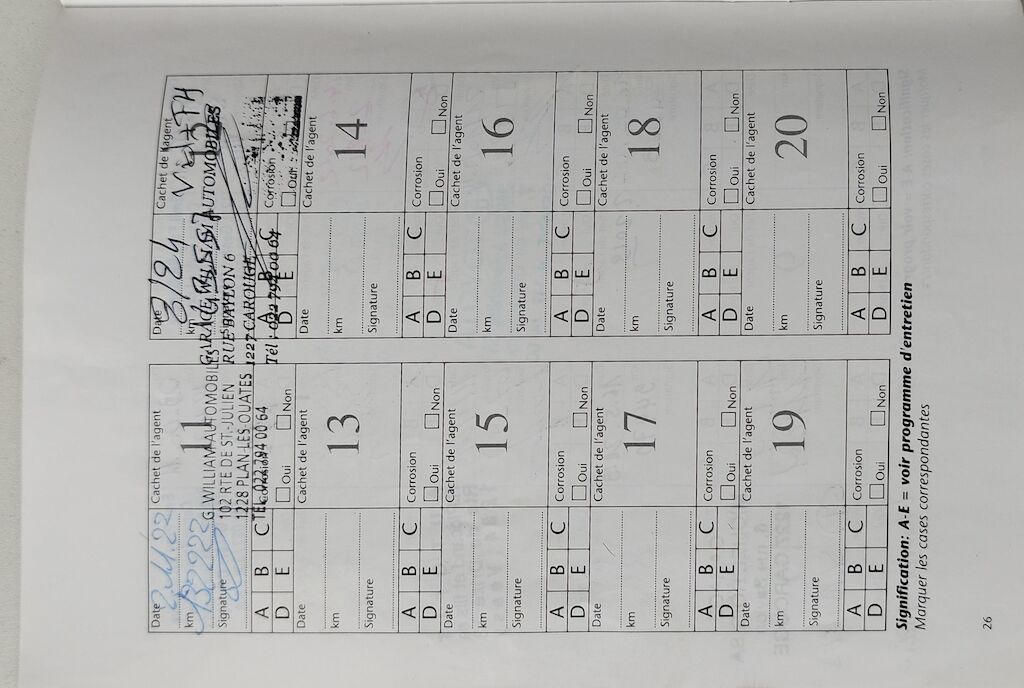 Date 2.11.22
Cachet de l'agent
11
km
Signature
G.WILLIAM AUTOMOBILES
102 RTE DE ST.-JULIEN
1228 PLAN-LES-OUATES
TEL. 022 794 00 64
A B C
D E
Corrosion
Oui Non
Date 3/24
Cachet de l'agent
km
Signature
GARAGE WILLIAM AUTOMOBILES
RUE BAYLON 6
1227 CAROUGE
Tél : 022 794 00 64
A B C
D E
Corrosion
Oui
Date
Cachet de l'agent
13
km
Signature
A B C
D E
Corrosion
Oui Non
Date
Cachet de l'agent
14
km
Signature
A B C
D E
Corrosion
Oui Non
Date
Cachet de l'agent
15
km
Signature
A B C
D E
Corrosion
Oui Non
Date
Cachet de l'agent
16
km
Signature
A B C
D E
Corrosion
Oui Non
Date
Cachet de l'agent
17
km
Signature
A B C
D E
Corrosion
Oui Non
Date
Cachet de l'agent
18
km
Signature
A B C
D E
Corrosion
Oui Non
Date
Cachet de l'agent
19
km
Signature
A B C
D E
Corrosion
Oui Non
Date
Cachet de l'agent
20
km
Signature
A B C
D E
Corrosion
Oui Non
Signification: A-E = voir programme d'entretien
Marquer les cases correspondantes
26